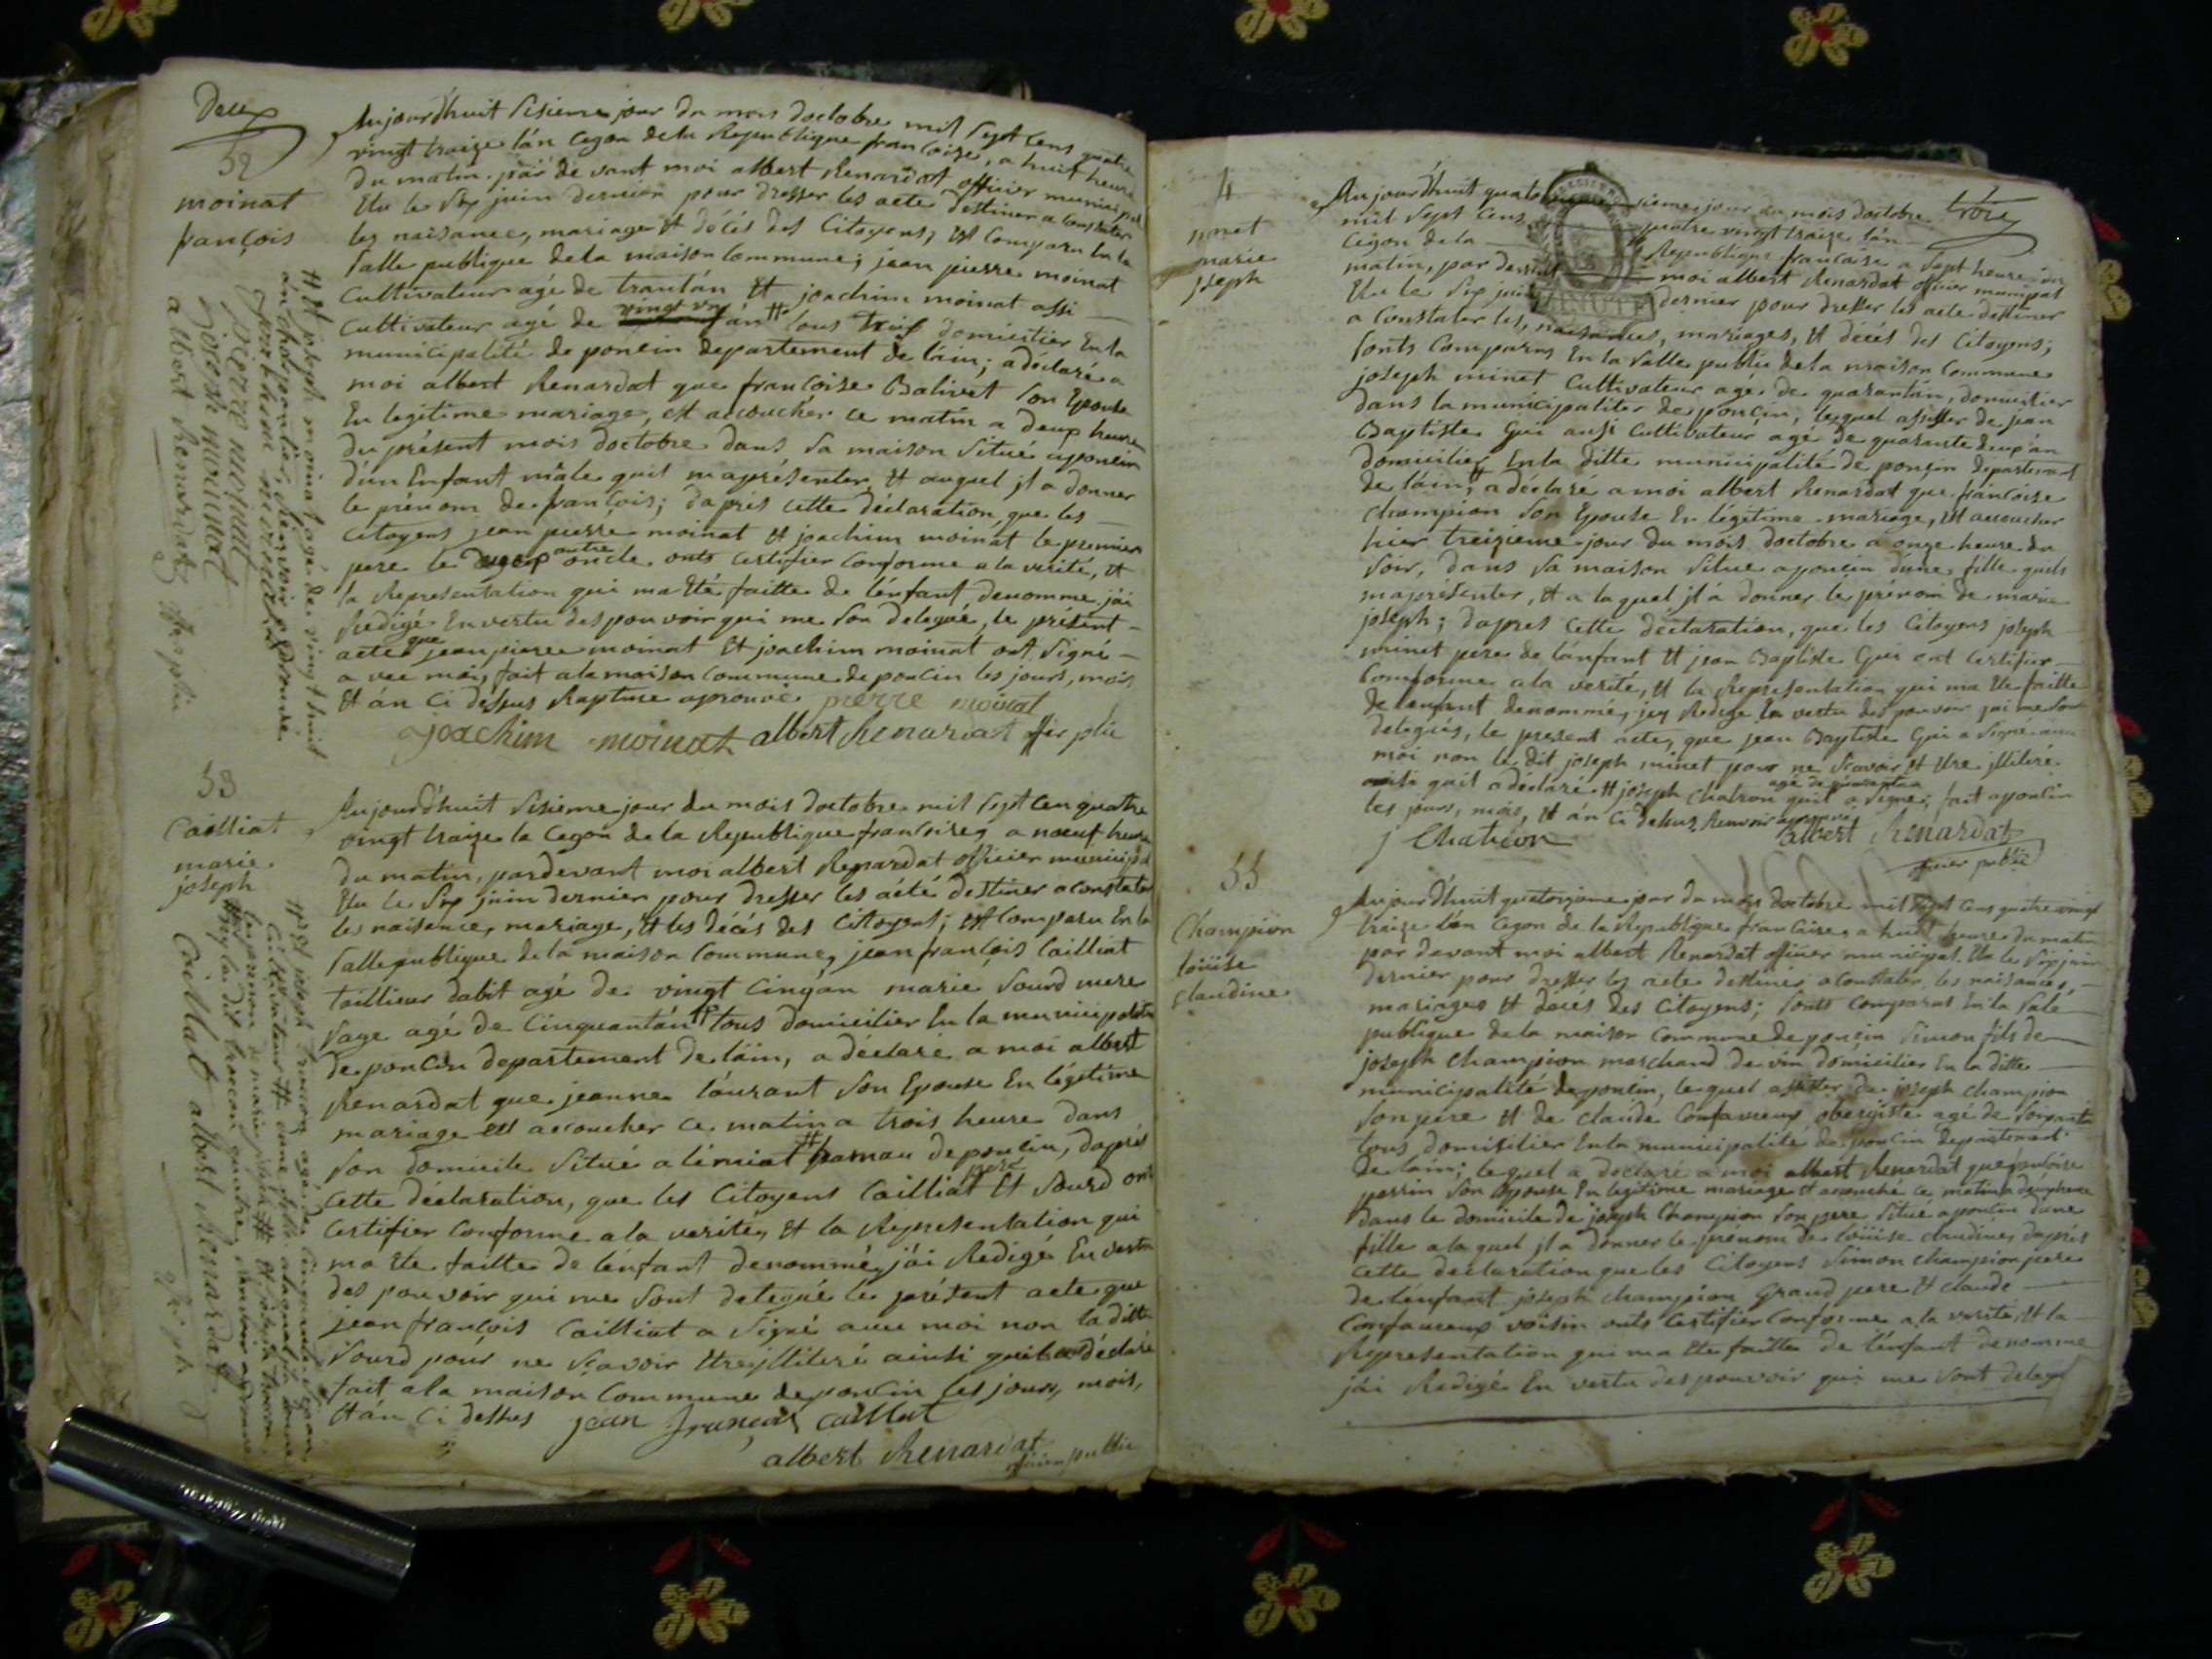 Deux
52
moinat
françois
Aujourd'huit sisieme jour du mois doctobre mil sept cens quatre
vingt traize l'án cegon de la Republique francoise, a huit heure
du matin. par de vant moi albert Renardat officier municipal
Elu le six juin dernier pour dresser les acte destiner a constater
les naisance, mariage et décés des Citoyens; est comparu En la
salle publique de la maison commune; jean pierre moinat
Cultivateur agé de trantán et joachim moinat assi
Cultivateur agé de vingt án # tous trois domicilier En la
municipalité de poncin departement de láin; a déclaré a
moi albert Renardat que francoise Balivet son Epouse
En legitime mariage, est accoucher ce matin a deux heure
du présent mois doctobre dans sa maison situé a poncin
d'un Enfant mâle quil ma présenter, et auquel jl a donner
le prénom de françois; daprés cette déclaration que les
citoyens jean pierre moinat et joachim moinat le premier
pere le autre oncle onts certifier conforme a la verité, et
la Representation qui ma Eté faitte de lénfant denomme jái
Redigé En vertu des pouvoir qui me son delegué, le présent
acte que jean pierre moinat et joachim moinat ont signé
a vec moi, fait a la maison commune de poncin les jours, mois
et án ci dessus Rapture aprouvé pierre moinat
joachim moinat albert Renardat
# et joseph moinat agé de vingt huit
pierre moinat
joachim moinat
joseph moinat
albert Renardat
53
Cailliat
marie
joseph
Aujourd'huit sisieme jour du mois doctobre mil sept cen quatre
vingt traize la cegon de la Republique francoise, a noeuf heure
du matin, par devant moi albert Renardat officier municipal
Elu le six juin dernier pour dresser les acté destiner a constater
les naisence, mariage, et les décés des Citoyens; est comparu En la
salle publique de la maison commune, jean françois Cailliat
taillieur dabit agé de vingt cinq án marie sourd mere
sage agé de cinquantán # tous domicilier En la municipalité
de poncin departement de láin, a déclaré a moi albert
Renardat que jeanne láurant son Epouse En légitime
mariage est accoucher ce matin a trois heure dans
son domicile situé a # hamau de poncin, daprés
cette déclaration, que les Citoyens Cailliat pere et sourd ont
certifier conforme a la verité, et la Representation qui
ma Eté faitte de lénfant denommé, jái Redigé En vertu
des pouvoir qui me sont delegué le présent acte que
jean françois Cailliat a signé avec moi non la ditte
sourd pour ne sçavoir Etre jlliteré ainsi quil a déclaré
fait a la maison commune de poncin les jours, mois,
et án ci dessus jean françois caillat
albert Renardat
officier public
Caillat albert Renardat
4
minet
marie
joseph
trois
Aujourd'huit sieme jour du mois doctobre
mil sept cens quatre vingt traize lán
cegon de la Republique francaise a sept heure du
matin, par devant moi albert Renardat officier municipal
Elu le six juin dernier pour dresser les acte destiner
a constater les, naisances, mariages, et décés des Citoyens;
sonts comparus En la salle public de la maison commune
joseph minet Cultivateur agé de quarantán, domicilier
dans la municipaliter de poncin, lequel assister de jean
Baptiste Gui ausi Cultivateur agé de quarante deux án
domicilier En la ditte municipalité de poncin departement
de láin, # a déclaré a moi albert Renardat que francoise
champion son Epouse En légitime mariage, est accoucher
hier treizieme jour du mois doctobre a onze heure du
soir, dans sa maison situé a poncin dúne fille quil
ma présenter, et a la quel jl á donner le prénom de marie
joseph; dapres cette déclaration, que les Citoyens joseph
minet pere de lánfant et jean Baptiste Gui ont certifier
conforme a la verité, et la Representation qui ma Ete faitte
de lenfant denommé, jey Redige En vertu des pouvoir qui me son
delegués, le present acte, que jean Baptiste Gui a signé avec
moi non le dit joseph minet pour ne sçavoir et Etre jlliteré
ainsi quil a déclaré et joseph Chatron quil a signé, fait a poncin
les jours, mois, et án ci desus, Renvoi aprouvé
j Chatron albert Renardat
officier public
55
Champion
loüise
claudine
Aujourd'huit quatorzieme jour du mois doctobre mil sept cens quatre vingt
traize lán cegon de la Republique francaise, a huit heure du matin
par devant moi albert Renardat officier municipal. Elu le six juin
dernier pour dresser les acte destiner a constater les naisances,
mariages et déces des Citoyens; sonts comparus En la sale
publique de la maison commune de poncin Simon fils de
joseph champion marchand de vin domicilier En la ditte
municipalité de poncin, lequel assister de joseph champion
son pere et de claude Confavreux obergiste agé de
tous domicilier En la municipalité de poncin departement
de láin; lequel a déclaré a moi albert Renardat que
perrin son Epouse En legitime mariage est accouché ce matin a
dans le domicile de joseph Champion son pere situé a poncin dune
fille a la quel jl a donner le prenom de loüise claudine, daprés
cette declaration que les Citoyens Simon champion pere
de lenfant joseph champion Grand pere et claude
Confavreux voisin onts certifier conforme a la verité, et la
Representation qui ma Eté faitte de lénfant denomme
jái Redigé En vertu des pouvoir qui me sont delegu